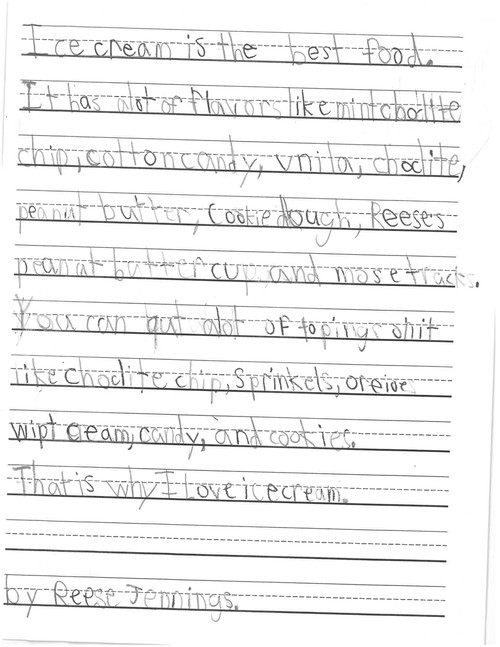 Ice cream is the best food.
It has alot of flavors like mint choclite
chip, cotton candy, vnila, choclite,
peanut butter, Cookie dough, Reese's
peanut butter cup and mose tracks.
You can put alot of topings onit
like choclite chip, Sprinkels, oreios
wipt cream, candy, and cookies.
That is why I Love ice cream.
by Reese Jennings.